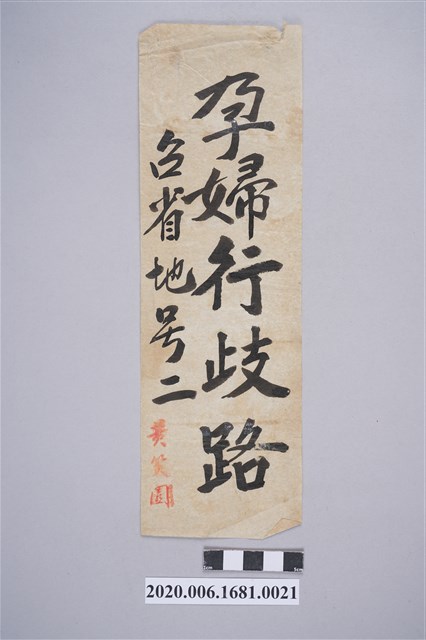 孕婦行歧路
台省地号二
黃笑園
2020.006.1681.0021